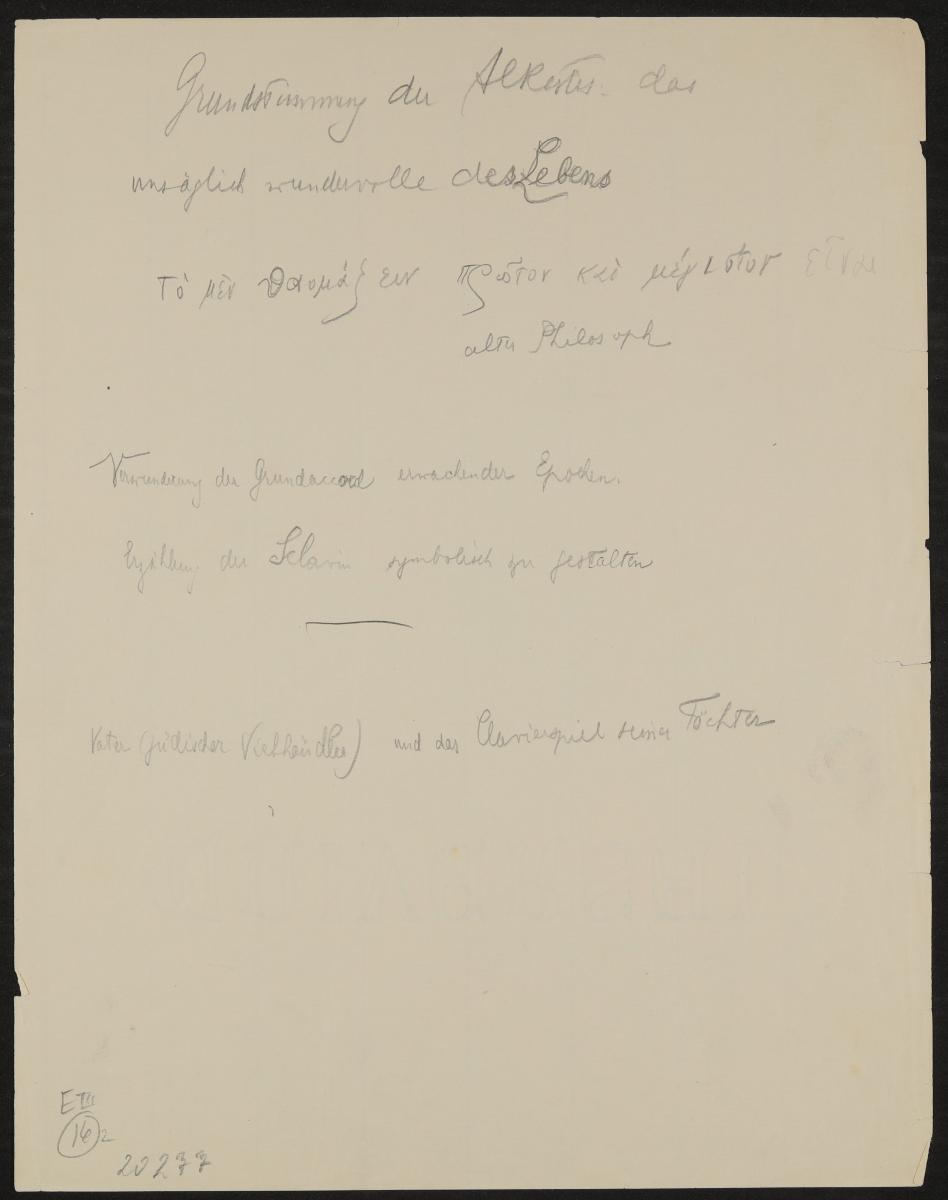 Grundstimmung der Alkestis: das
unsäglich wundervolle des Lebens
τὸ μὲν θαυμάζειν πρῶτον καὶ μέγιστον εἶναι
alter Philosoph
Verwunderung der Grundaccord erwachender Epochen.
Erzählung der Sclavin symbolisch zu gestalten
Vater (jüdischer Viehhändler) und das Clavierspiel seiner Töchter
E III
16 2
20277